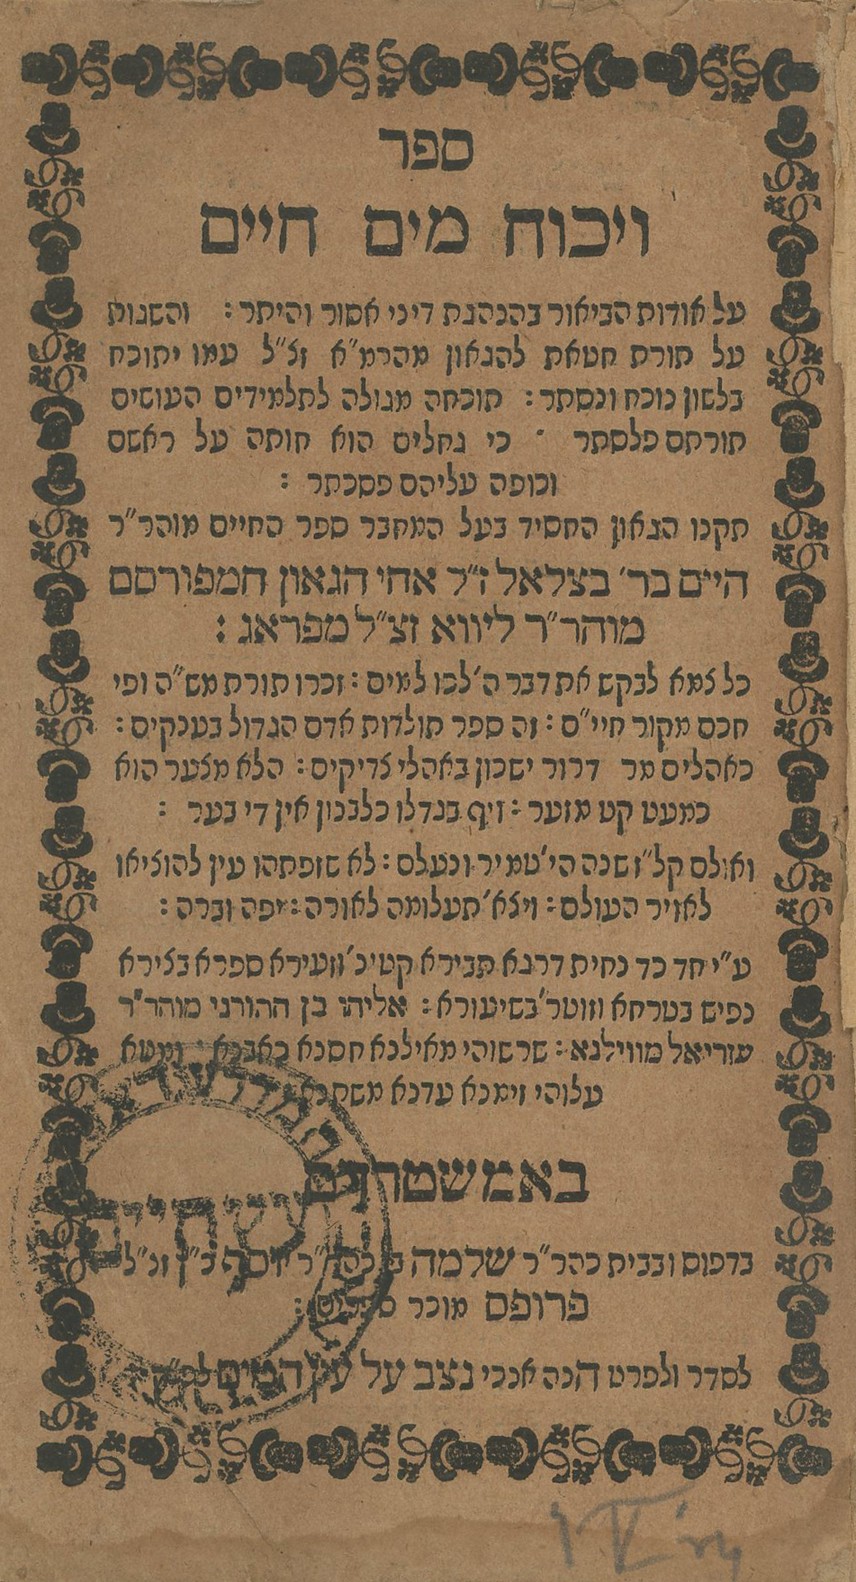 ספר
ויכוח מים חיים
על אודות הביאור בהנהגת דיני אסור והיתר : והשגות
על תורת חטאת להגאון מהרמ״א ז״ל עמו יתוכח
בלשון נוכח ונסתר : תוכחה מגולה לתלמידים העושים
תורתם פלסתר ׃ כי גחלים הוא חותה על ראשם
וכופה עליהם פסכתר :
תקנו הגאון החסיד בעל המחבר ספר החיים מוהר״ר
חיים בר׳ בצלאל ז״ל אחי הגאון המפורסם
מוהר״ר ליווא זצ״ל מפראג :
כל צמא לבקש את דבר ה׳ לכו למים : זכרו תורת מש״ה ופי
חכם מקור חיי״ם : זה ספר תולדות אדם הגדול בענקים :
כאהלים מר דרור ישכון באהלי צדיקים : הלא מצער הוא
כמעט קט מזער : זיף בגדלו כלבנון אין די בער :
ואולם קל״ז שנה הי׳ טמיר ונעלם : לא שזפתהו עין להוציאו
לאויר העולם : ויצא׳ תעלומה לאורה : יפה וברה :
ע״י חד כד נחית דרגא תבירא קטינ׳ וזעירא ספרא בצירא
נפיש בטרחא וזוטר׳ בשיעורא : אליהו בן ההורני מוהר״ר
עזריאל מווילנא : שרשוהי מאילנא חסנא כאבבא ומטא
עלוהי זימנא עדנא
באמשטרדם
בדפוס ובבית כהר״ר שלמה בן כהר״ר יוסף כ״ץ זצ״ל
פרופס מוכר ספרים :
לסדר ולפרט הנה אנכי נצב על עין המים לפ״ק
עץ חיים